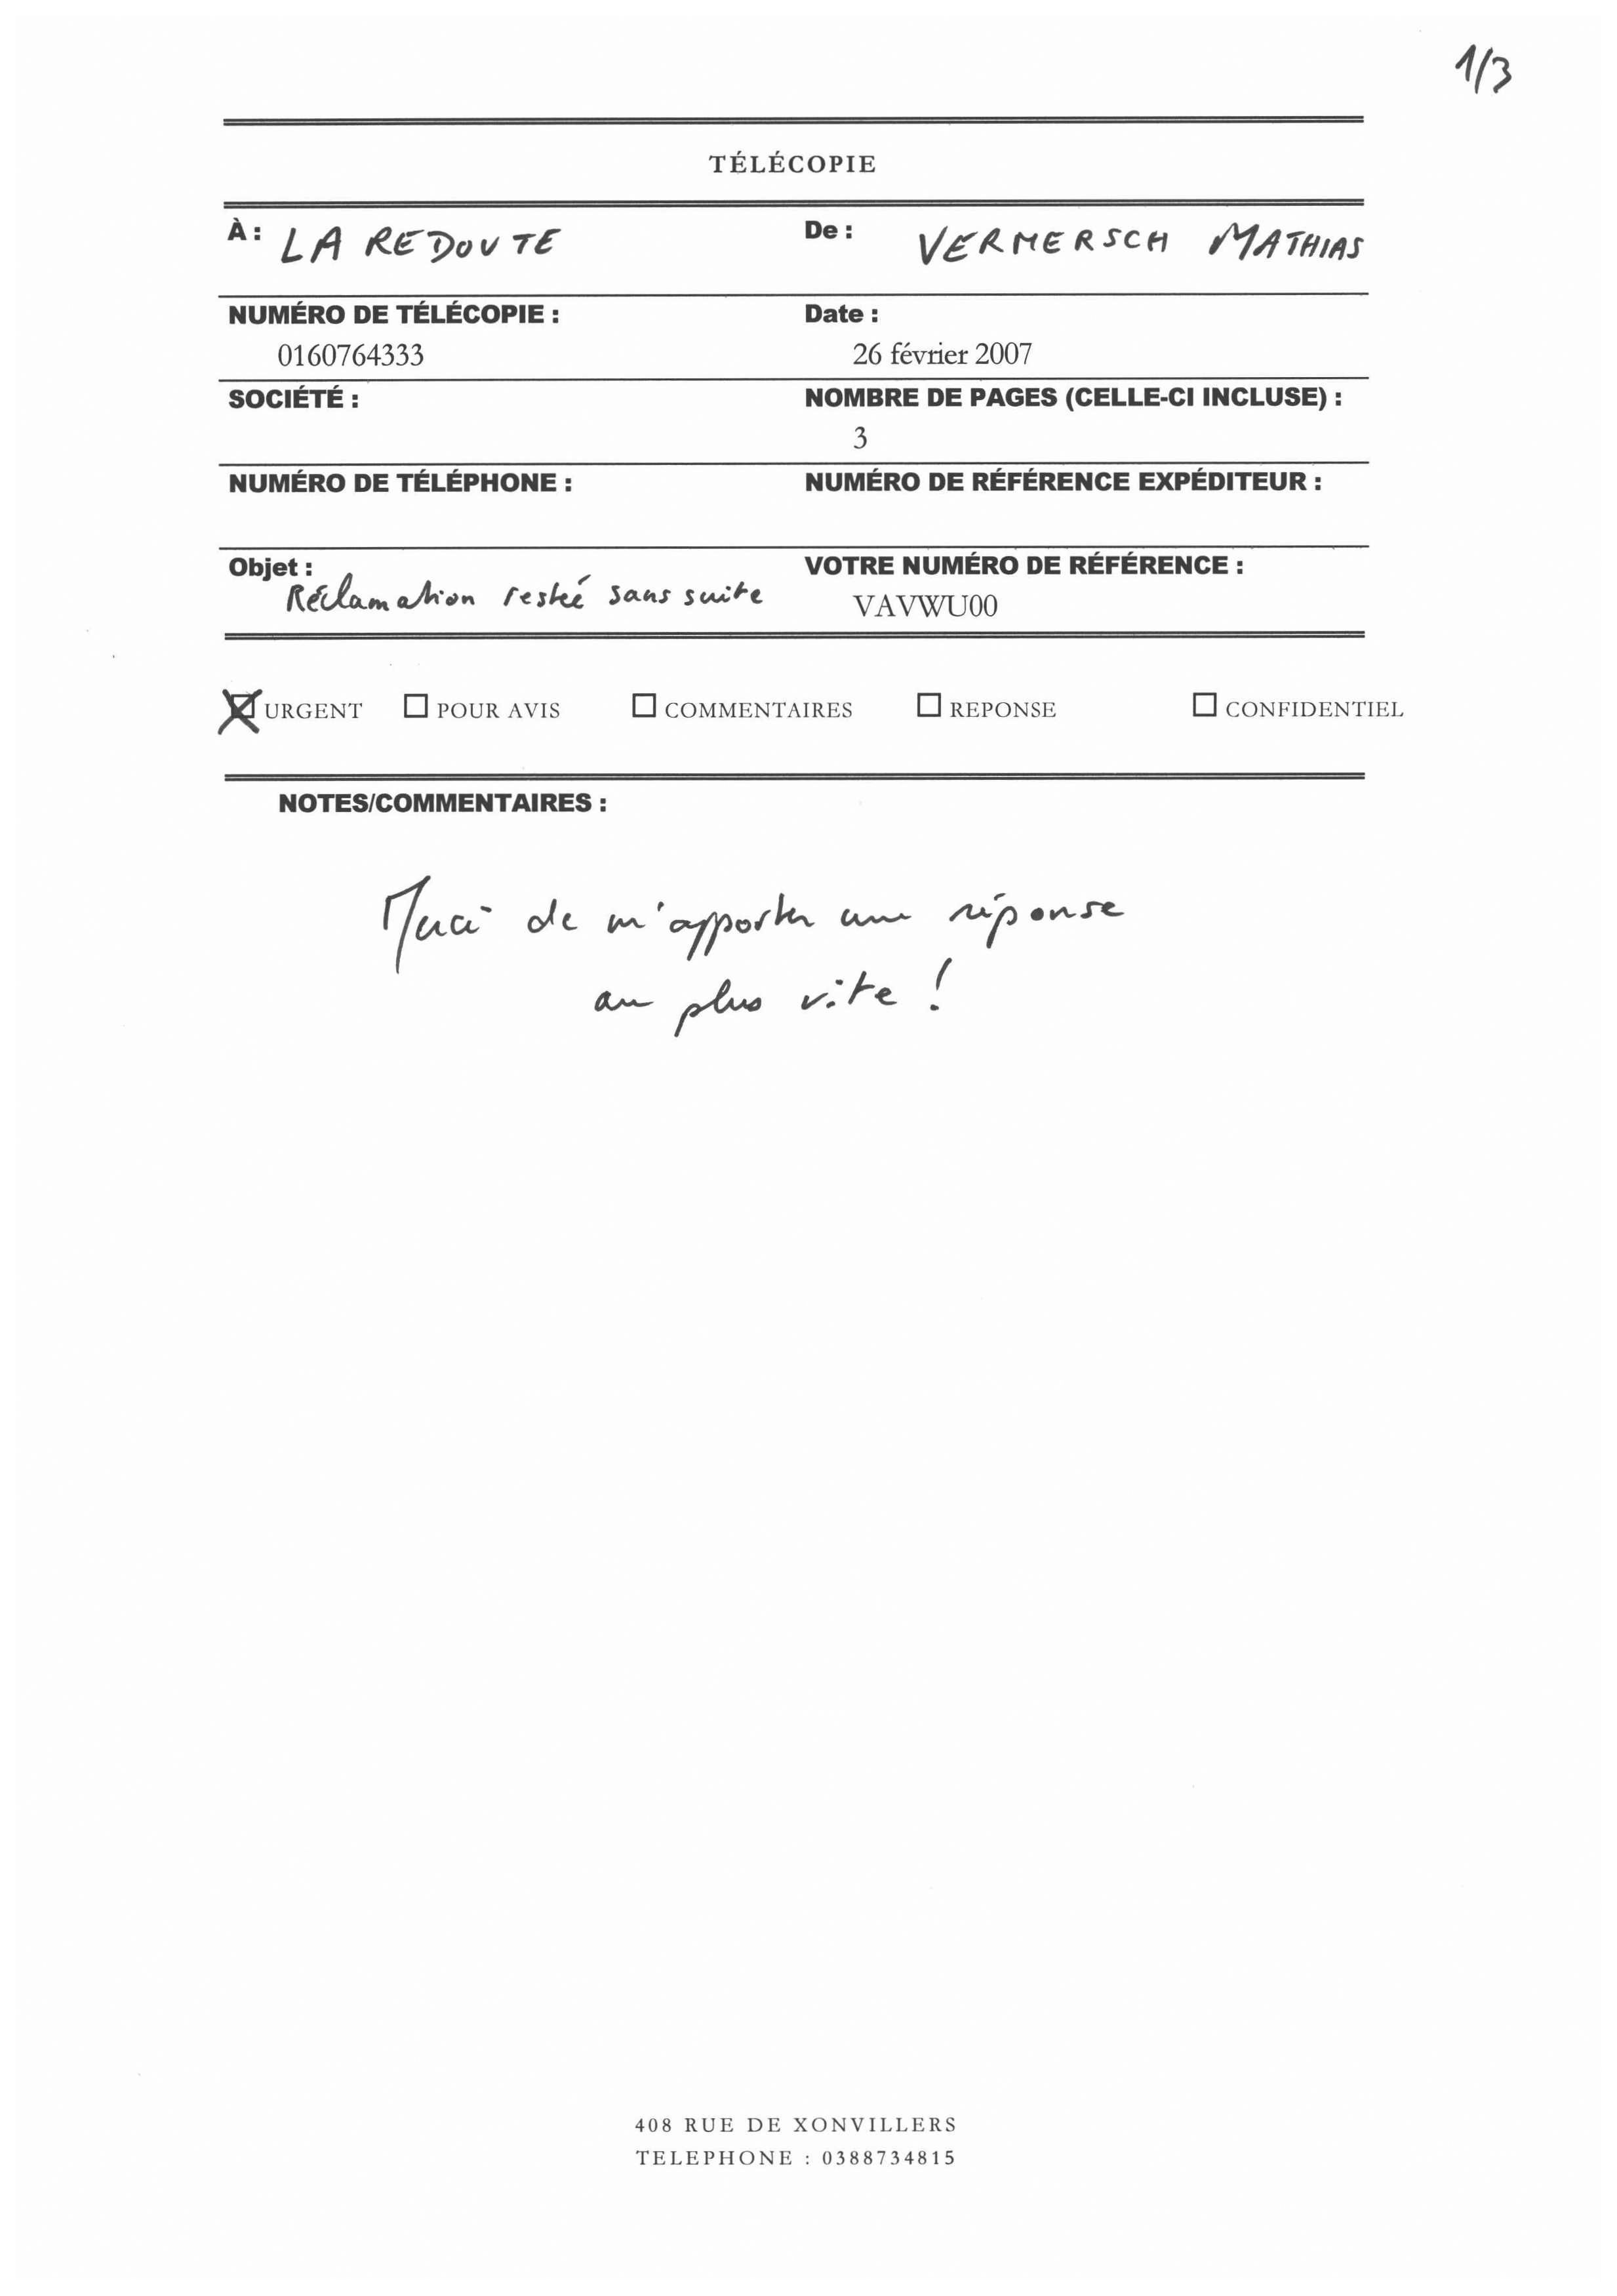 1/3
TÉLÉCOPIE
À : LA REDOUTE
De : VERMERSCH MATHIAS
NUMÉRO DE TÉLÉCOPIE :
0160764333
Date :
26 février 2007
SOCIÉTÉ :
NOMBRE DE PAGES (CELLE-CI INCLUSE) :
3
NUMÉRO DE TÉLÉPHONE :
NUMÉRO DE RÉFÉRENCE EXPÉDITEUR :
Objet :
Réclamation resteé sans suite
VOTRE NUMÉRO DE RÉFÉRENCE :
VAVWU00
URGENT POUR AVIS COMMENTAIRES REPONSE CONFIDENTIEL
NOTES/COMMENTAIRES :
Merci de m'apporter une réponse
au plus vite !
408 RUE DE XONVILLERS
TELEPHONE : 0388734815